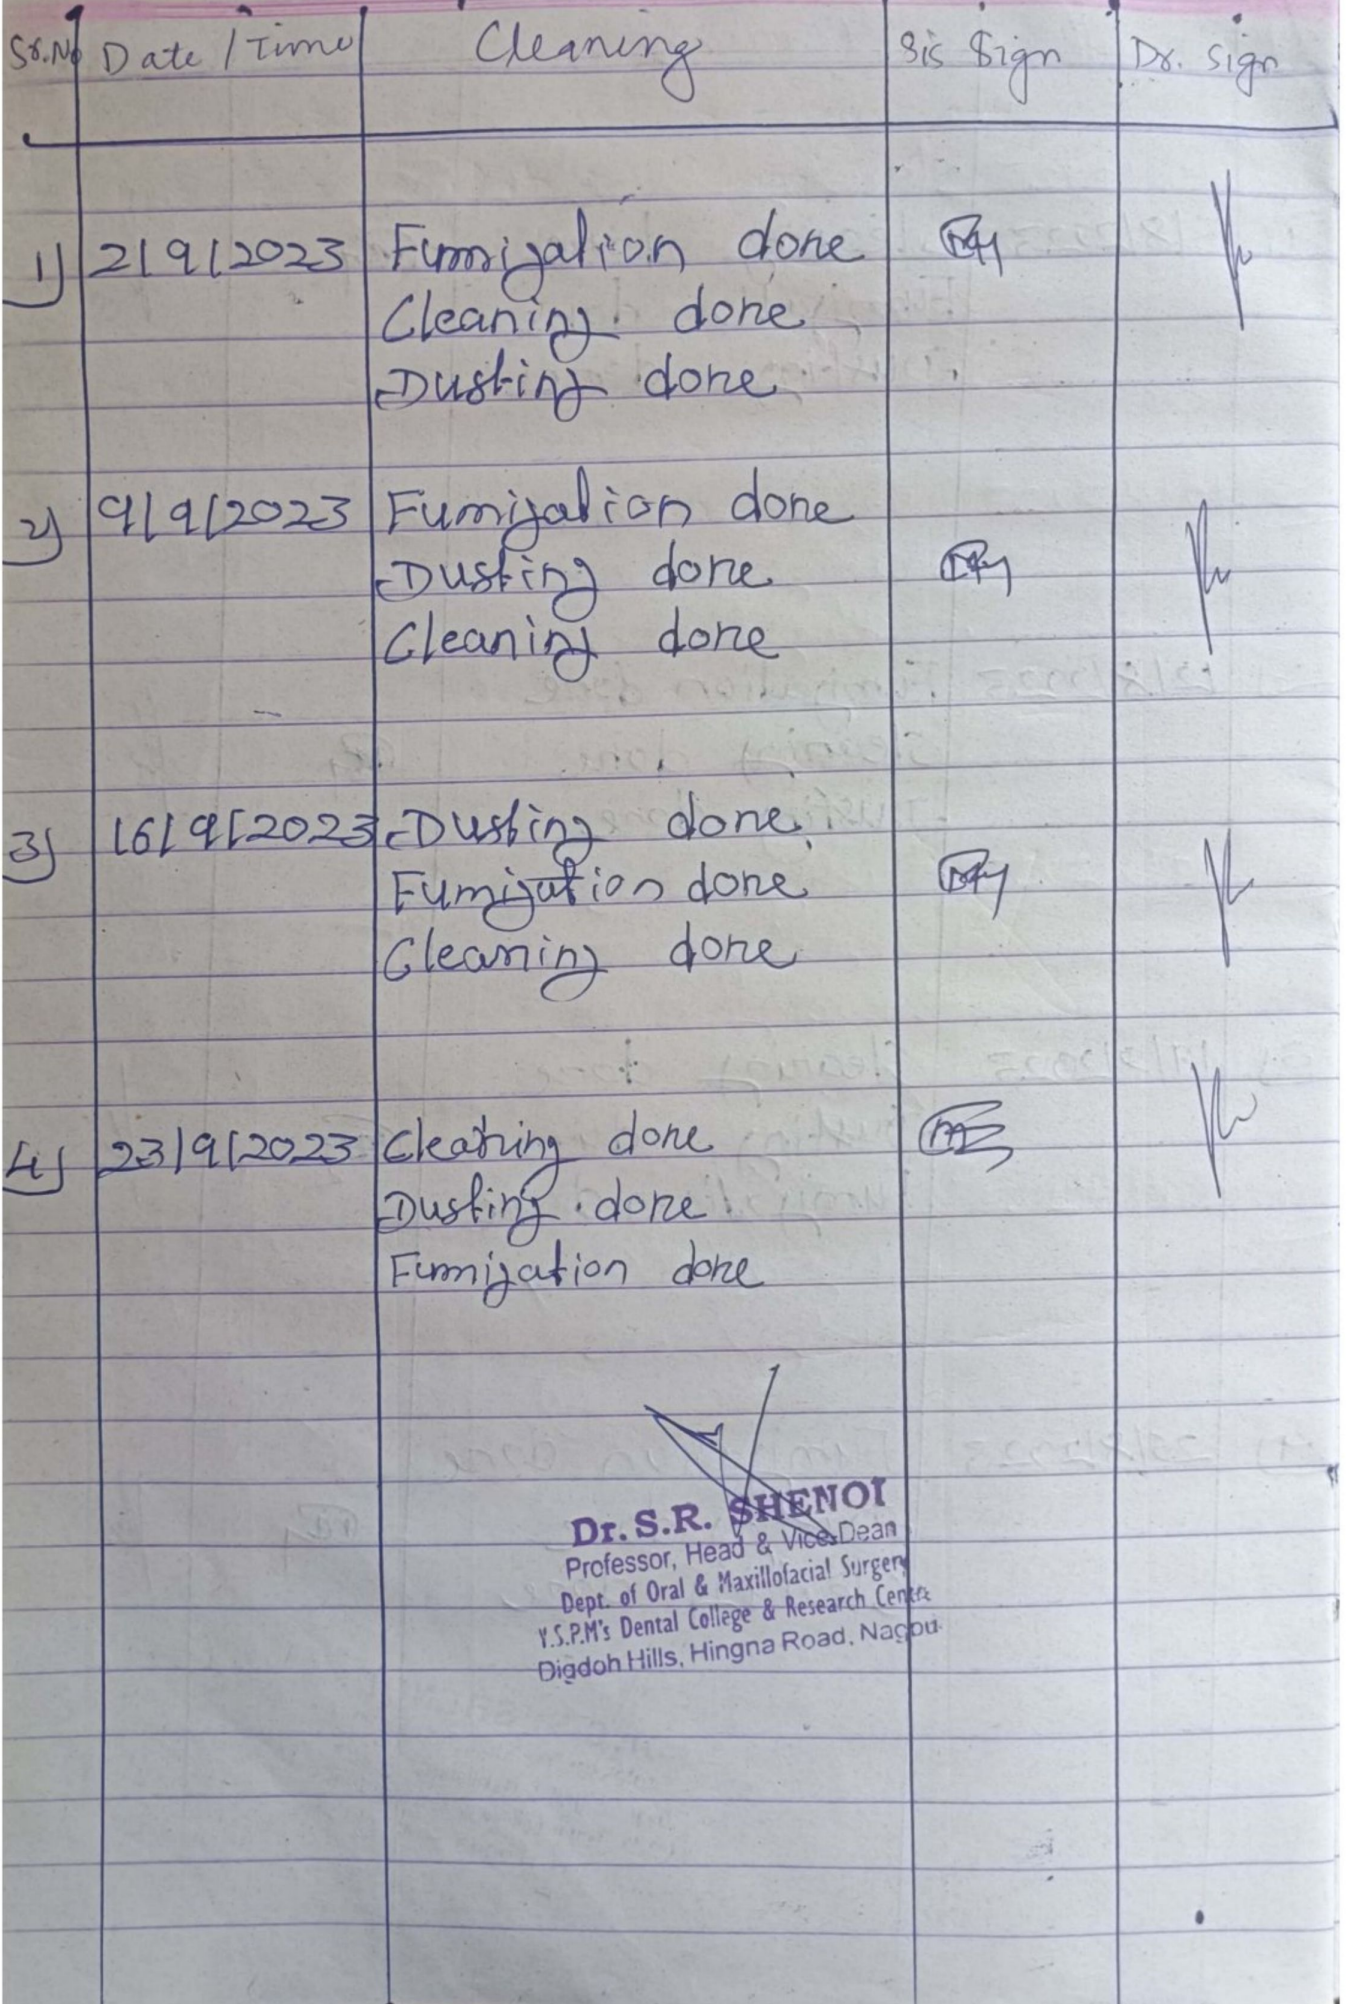 Sr.No Date / Time Cleaning Sis Sign Dr. Sign
1) 2/9/2023 Fumigation done
Cleaning done
Dusting done
2) 9/9/2023 Fumigation done
Dusting done
Cleaning done
3) 16/9/2023 Dusting done
Fumigation done
Cleaning done
4) 23/9/2023 Cleaning done
Dusting done
Fumigation done
Dr. S.R. SHENOI
Professor, Head & Vice Dean
Dept. of Oral & Maxillofacial Surgery
Y.S.P.M's Dental College & Research Centre
Digdoh Hills, Hingna Road, Nagpu